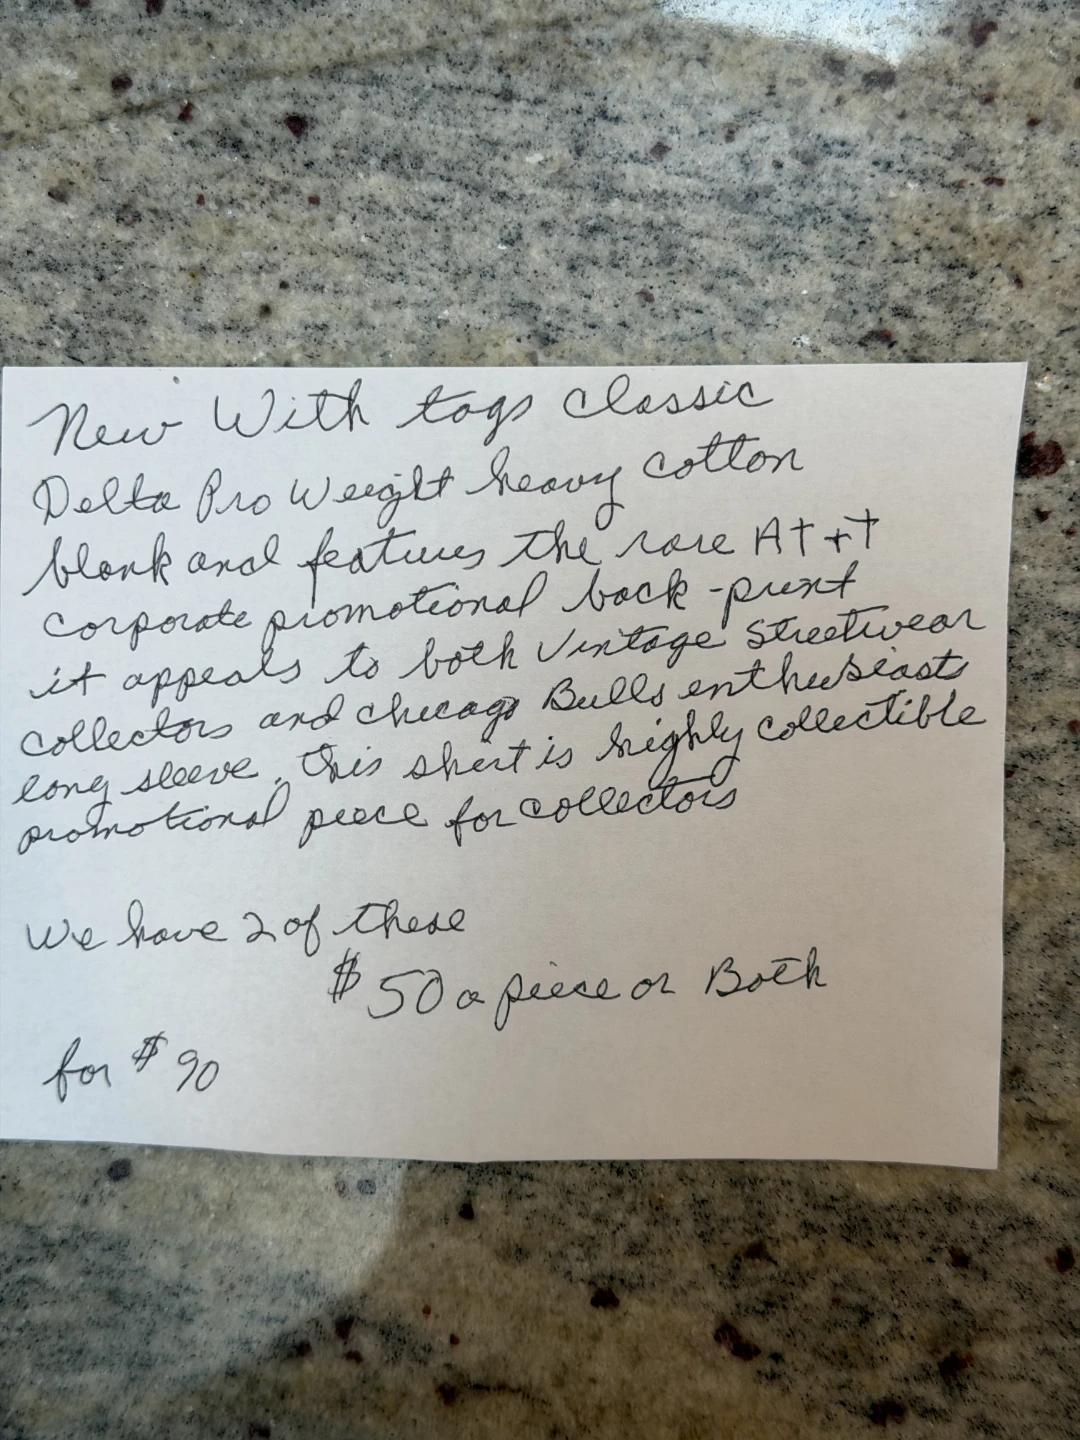 New With tags classic
Delta Pro Weight heavy cotton
blank and features the rare At+t
corporate promotional back-print
it appeals to both Vintage Streetwear
collectors and chicago Bulls enthusiasts
long sleeve, this shirt is highly collectible
promotional piece for collectors
We have 2 of these
$50 a piece or Both
for $90